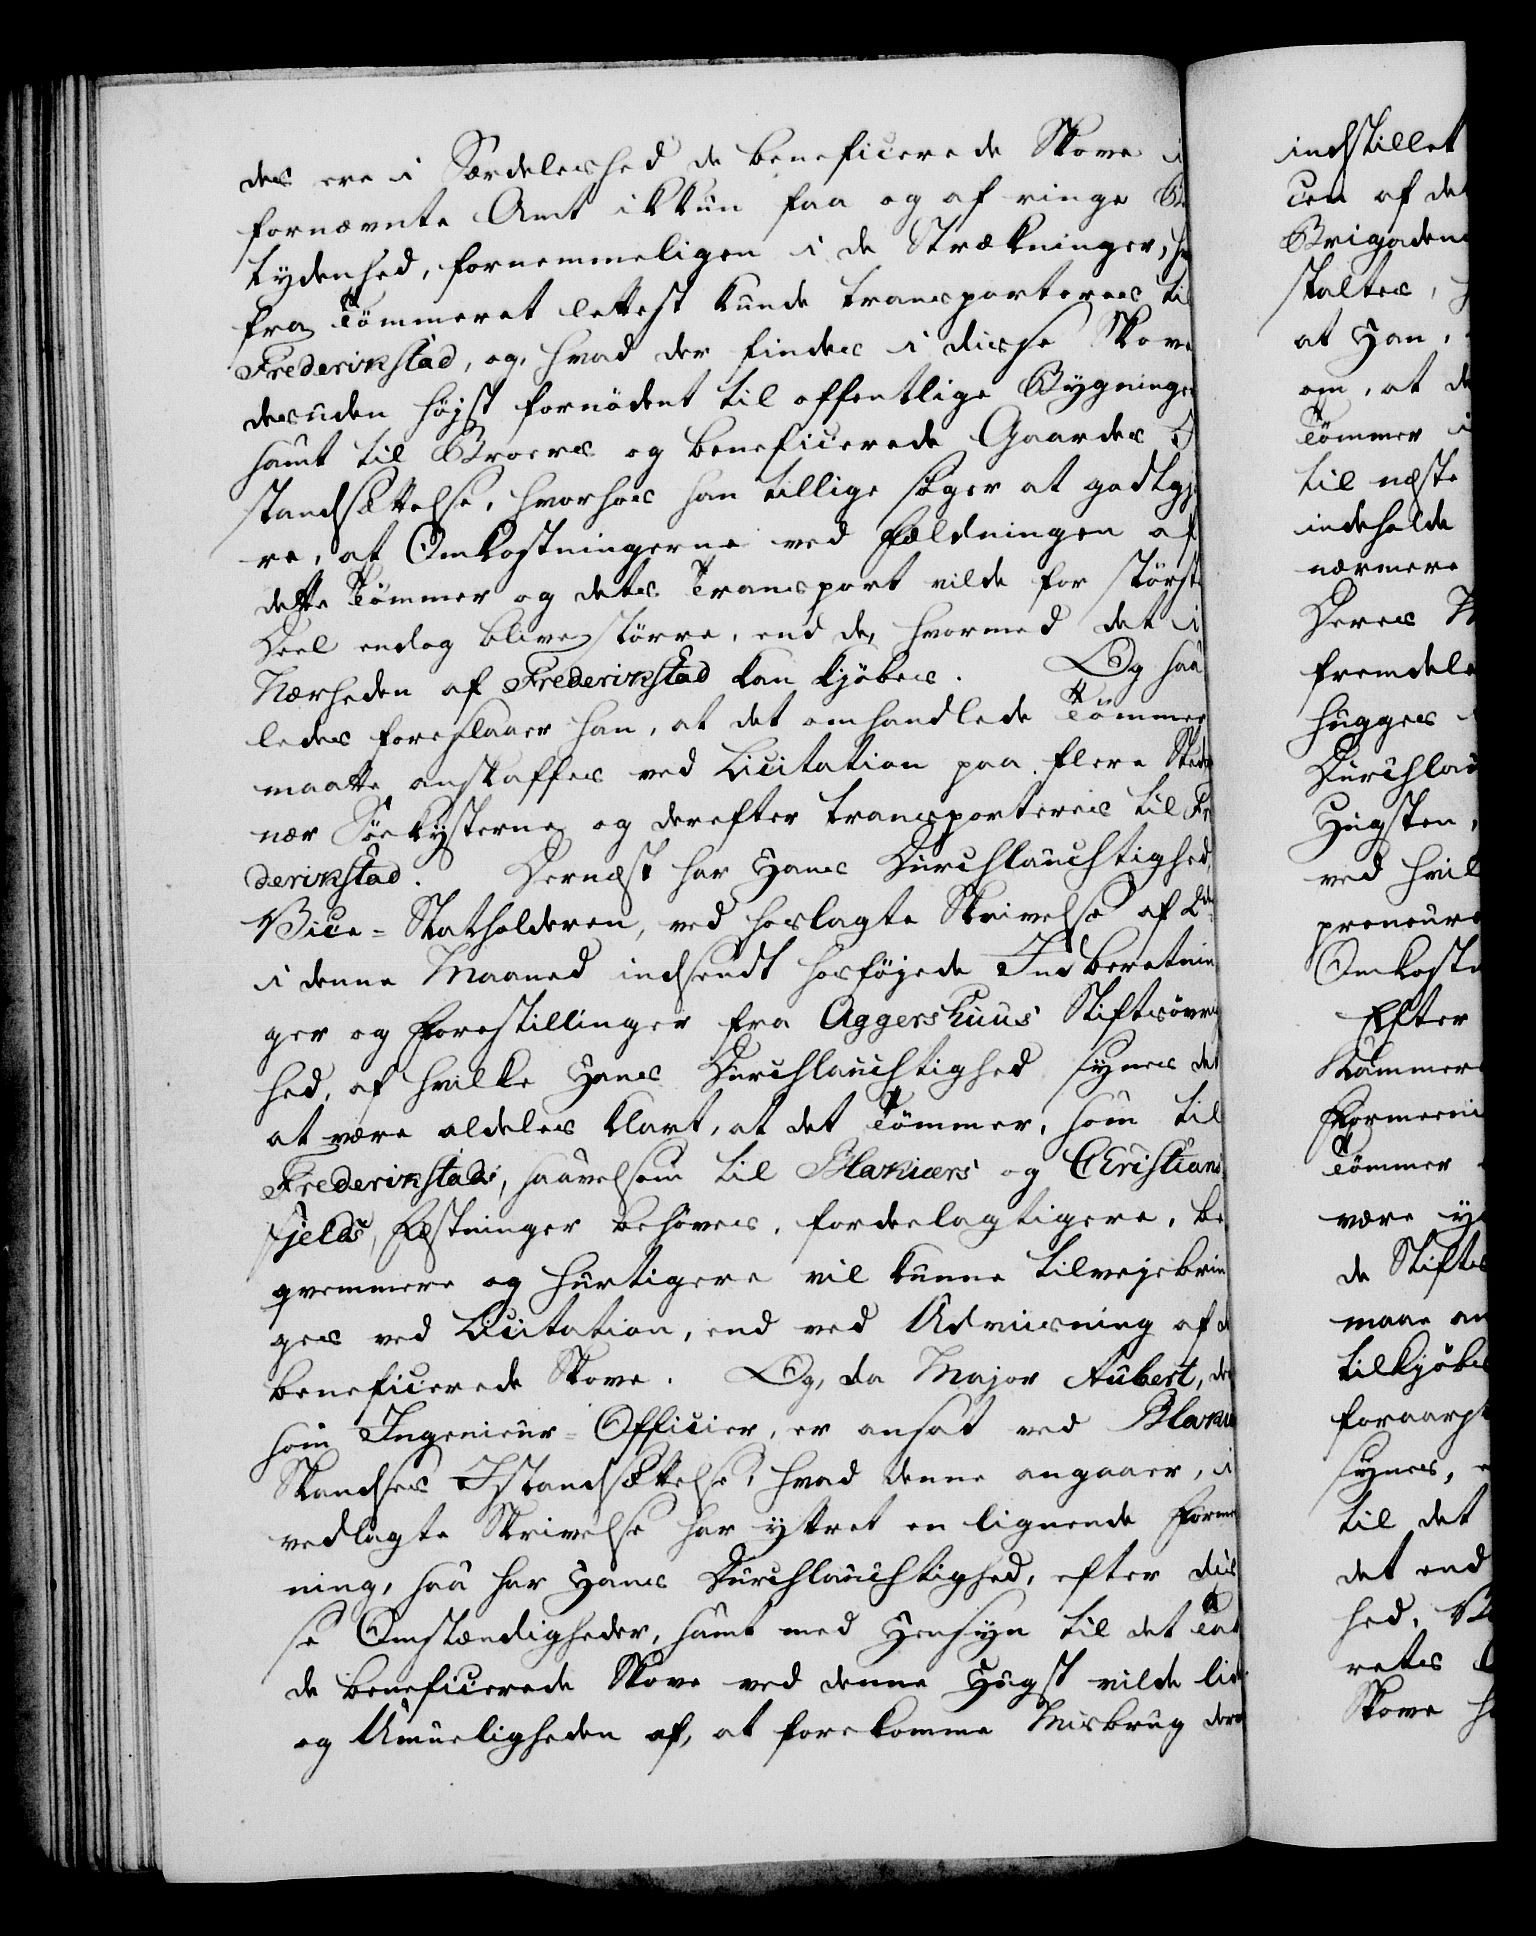 des ere i Særdeleshed de beneficerede Skove i
fornævnte Amt ikkun faa og af ringe Be
tydenhed, fornemmeligen i de Strækninger, hvor
fra Tømmeret lettest kunde transporteres til
Frederikstad, og, hvad der findes i disse Skove
desuden højst fornødent til offentlige Bygninger
samt til Broers og beneficerede Gaardes I
standsættelse, hvorhos han tillige søger at godtgjø
re, at Omkostningerne ved Fældningen af
dette Tømmer og dets Transport vilde for største
Deel endog blive større, end de, hvormed det i
Nærheden af Frederikstad kan kjøbes. Og saa
ledes foreslaaer han, at det omhandlede Tømmer
maatte anskaffes ved Licitation paa flere Steder
nær Søekysterne og derefter transporteres til Fre
derikstad. Dernæst har Hans Durchlauchtighed,
Vice-Statholderen, ved hoslagte Skrivelse af 2den
i denne Maaned indsendt hosføjede Indberetnin
ger og Forestillinger fra Aggershuus Stiftsøvrig
hed, af hvilke Hans Durchlauchtighed synes det
at være aldeles klart, at det Tømmer, som til
Frederikstads, saavelsom til Blakiærs og Christians
fjelds, Fæstninger behøves, fordeelagtigere, be
qvemmere og hurtigere vil kunne tilvejebrin
ges ved Licitation, end ved Udviisning af de
beneficerede Skove. Og, da Major Aubert, der
som Ingenieur-Officier, er ansat ved Blakiær
Skandses Istandsættelse, hvad denne angaaer, i
vedlagte Skrivelse har yttret en lignende Forme
ning, saa har Hans Durchlauchtighed, efter dis
se Omstændigheder, samt med Hensyn til det Tab
de beneficerede Skove ved denne Hugst vilde lide
og Umueligheden af, at forekomme Misbrug derved
indstillet
ten af de
Brigaden
staltes,
at Han,
om, at de
Tømmer i
til næste
indeholde
nærmere
Deres
fremdele
hugges
Durchlau
Hugsten,
ved hvil
preneure
Omkostn
Efter
Kammer
Formeeni
Tømmer
være
de Stifts
maae an
tilkjøbes
foraarsa
synes,
til det
det end
hed,
rets
Skove